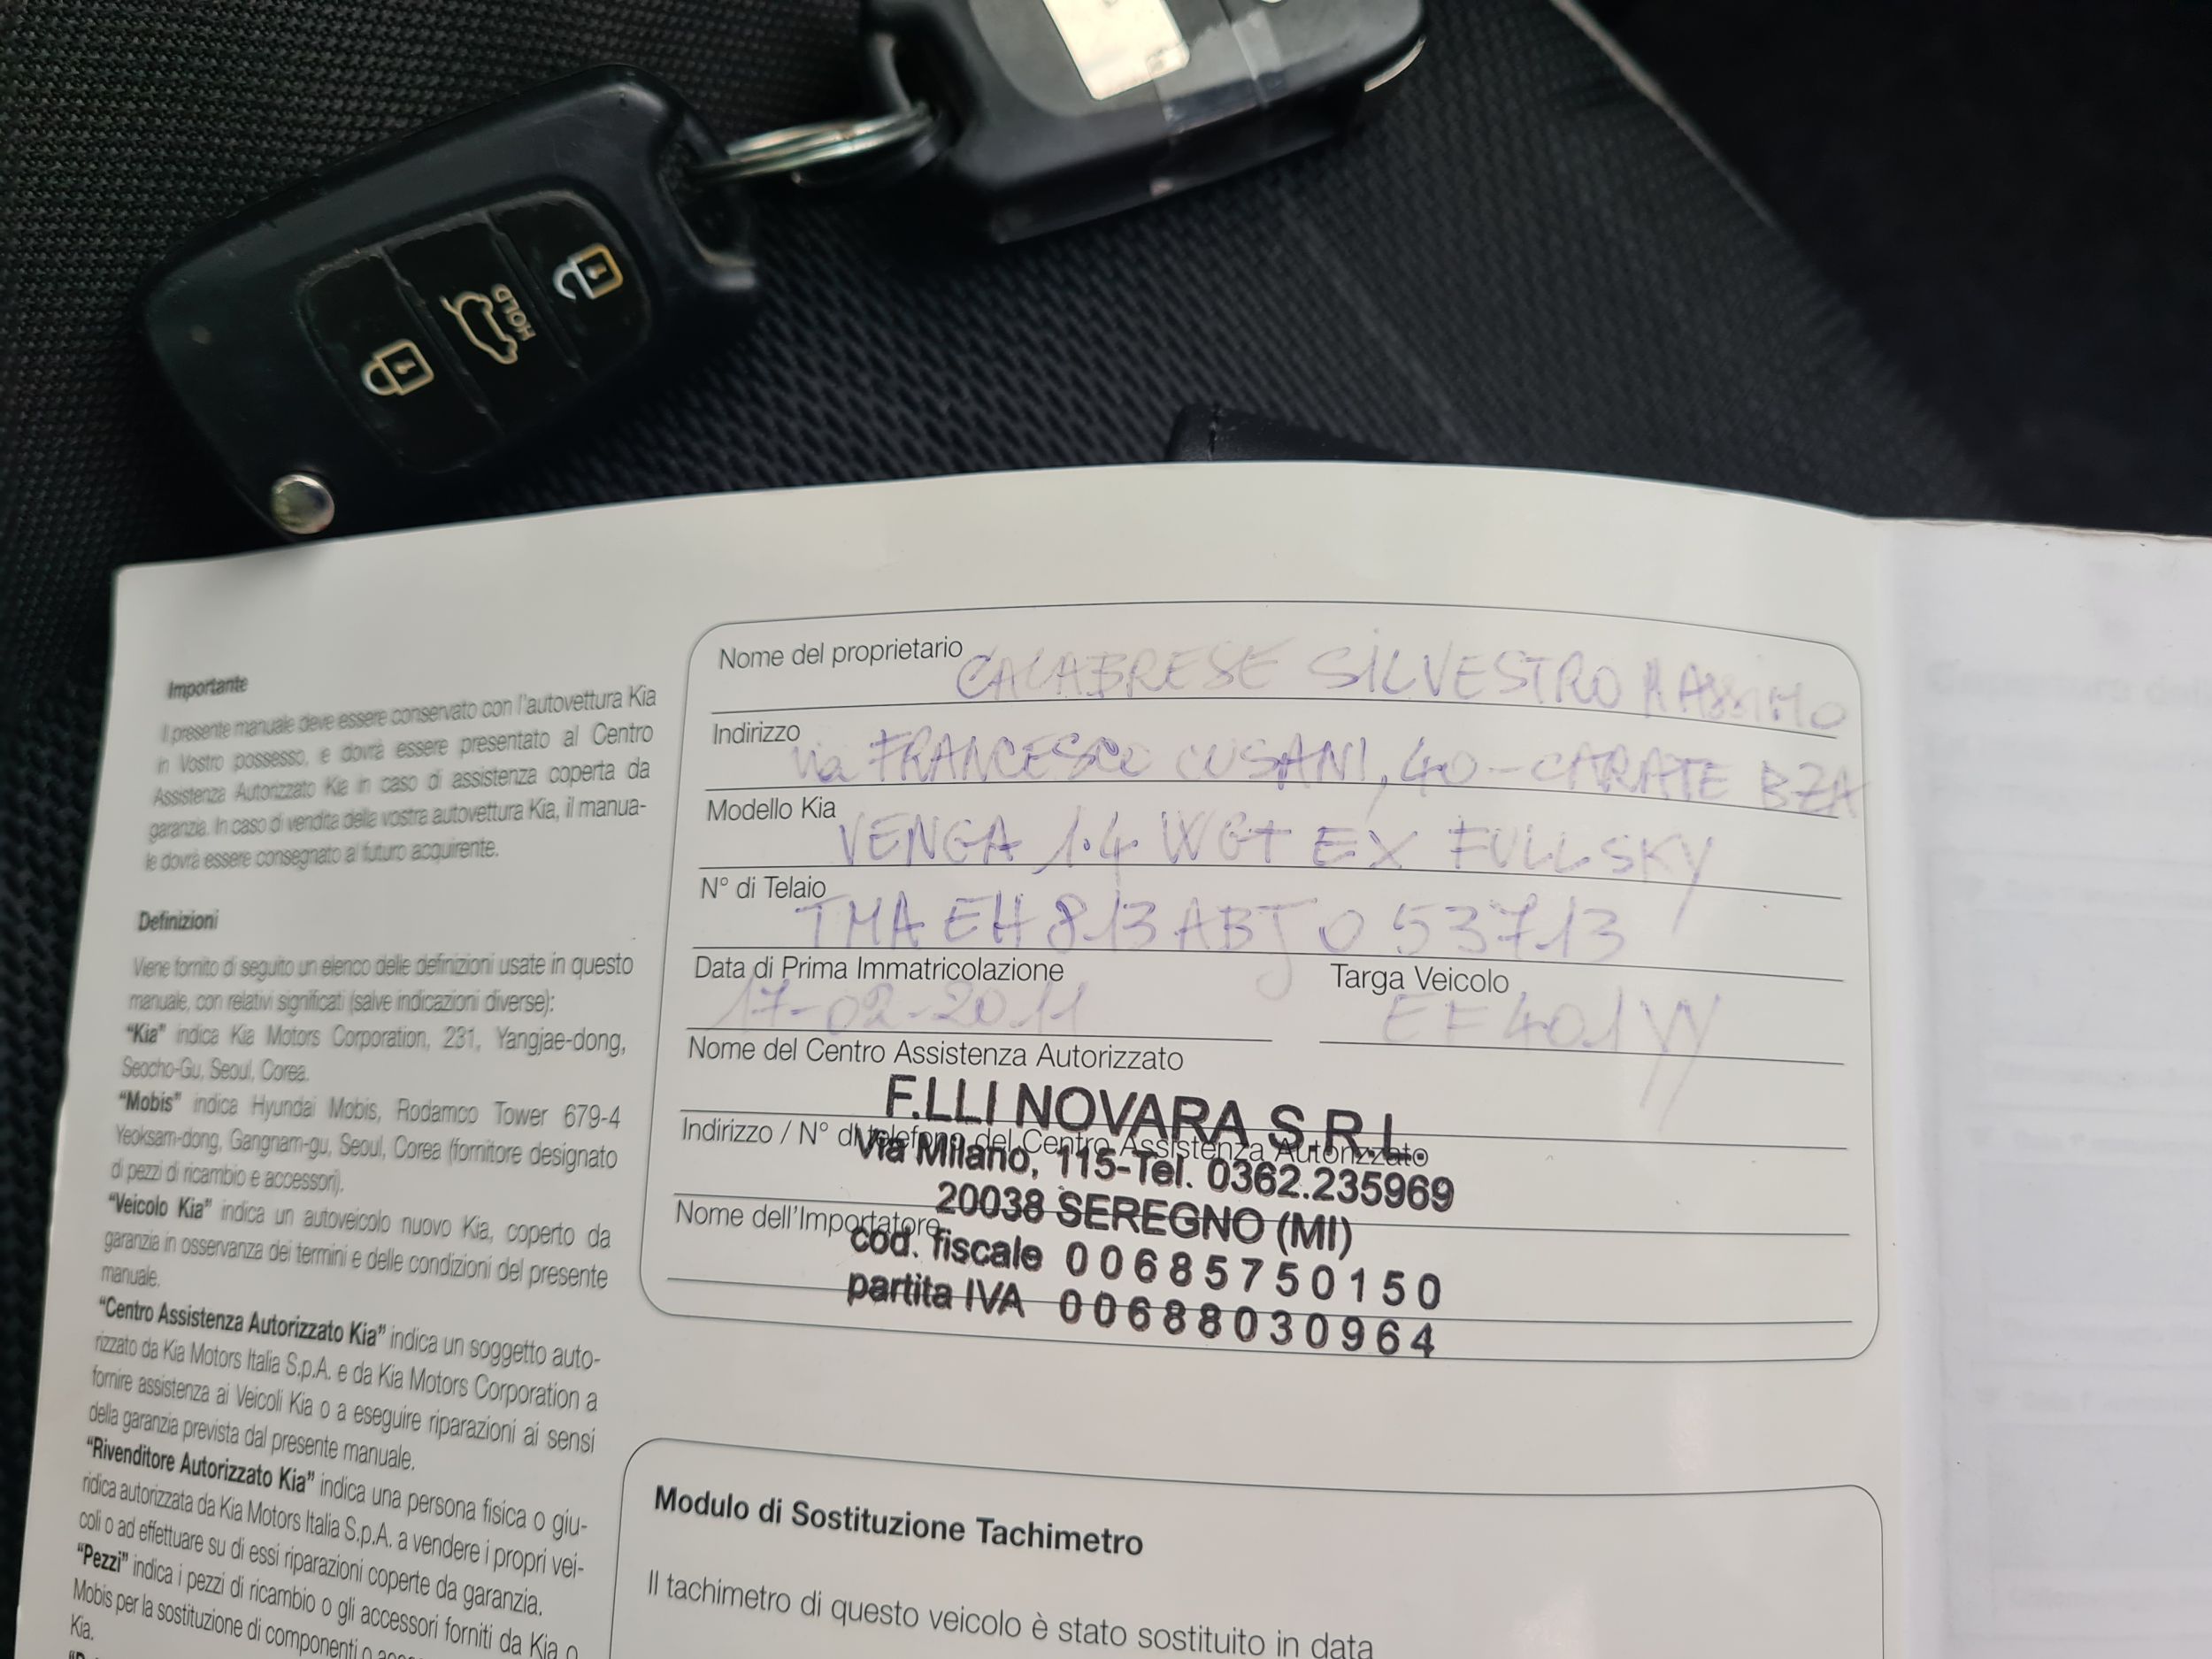 HOLD
Importante
Il presente manuale deve essere conservato con l'autovettura Kia
in Vostro possesso, e dovrà essere presentato al Centro
Assistenza Autorizzato Kia in caso di assistenza coperta da
garanzia. In caso di vendita della vostra autovettura Kia, il manua-
le dovrà essere consegnato al futuro acquirente.
Definizioni
Viene fornito di seguito un elenco delle definizioni usate in questo
manuale, con relativi significati (salve indicazioni diverse):
"Kia" indica Kia Motors Corporation, 231, Yangjae-dong,
Seocho-Gu, Seoul, Corea.
"Mobis" indica Hyundai Mobis, Rodamco Tower 679-4
Yeoksam-dong, Gangnam-gu, Seoul, Corea (fornitore designato
di pezzi di ricambio e accessori).
"Veicolo Kia" indica un autoveicolo nuovo Kia, coperto da
garanzia in osservanza dei termini e delle condizioni del presente
manuale.
"Centro Assistenza Autorizzato Kia" indica un soggetto auto-
rizzato da Kia Motors Italia S.p.A. e da Kia Motors Corporation a
fornire assistenza ai Veicoli Kia o a eseguire riparazioni ai sensi
della garanzia prevista dal presente manuale.
"Rivenditore Autorizzato Kia" indica una persona fisica o giu-
ridica autorizzata da Kia Motors Italia S.p.A. a vendere i propri vei-
coli o ad effettuare su di essi riparazioni coperte da garanzia.
"Pezzi" indica i pezzi di ricambio o gli accessori forniti da Kia o
Mobis per la sostituzione di componenti o
Kia.
Nome del proprietario CALABRESE SILVESTRO MASSIMO
Indirizzo via FRANCESCO CUSANI, 40 - CARATE BZA
Modello Kia VENGA 1.4 WGT EX FULLSKY
N° di Telaio TMAEH813ABJ053713
Data di Prima Immatricolazione Targa Veicolo
17-02-2011 EF401YY
Nome del Centro Assistenza Autorizzato
F.LLI NOVARA S.R.L.
Indirizzo / N° di telefono del Centro Assistenza Autorizzato
Via Milano, 115-Tel. 0362.235969
20038 SEREGNO (MI)
Nome dell'Importatore
cod. fiscale 00685750150
partita IVA 00688030964
Modulo di Sostituzione Tachimetro
Il tachimetro di questo veicolo è stato sostituito in data